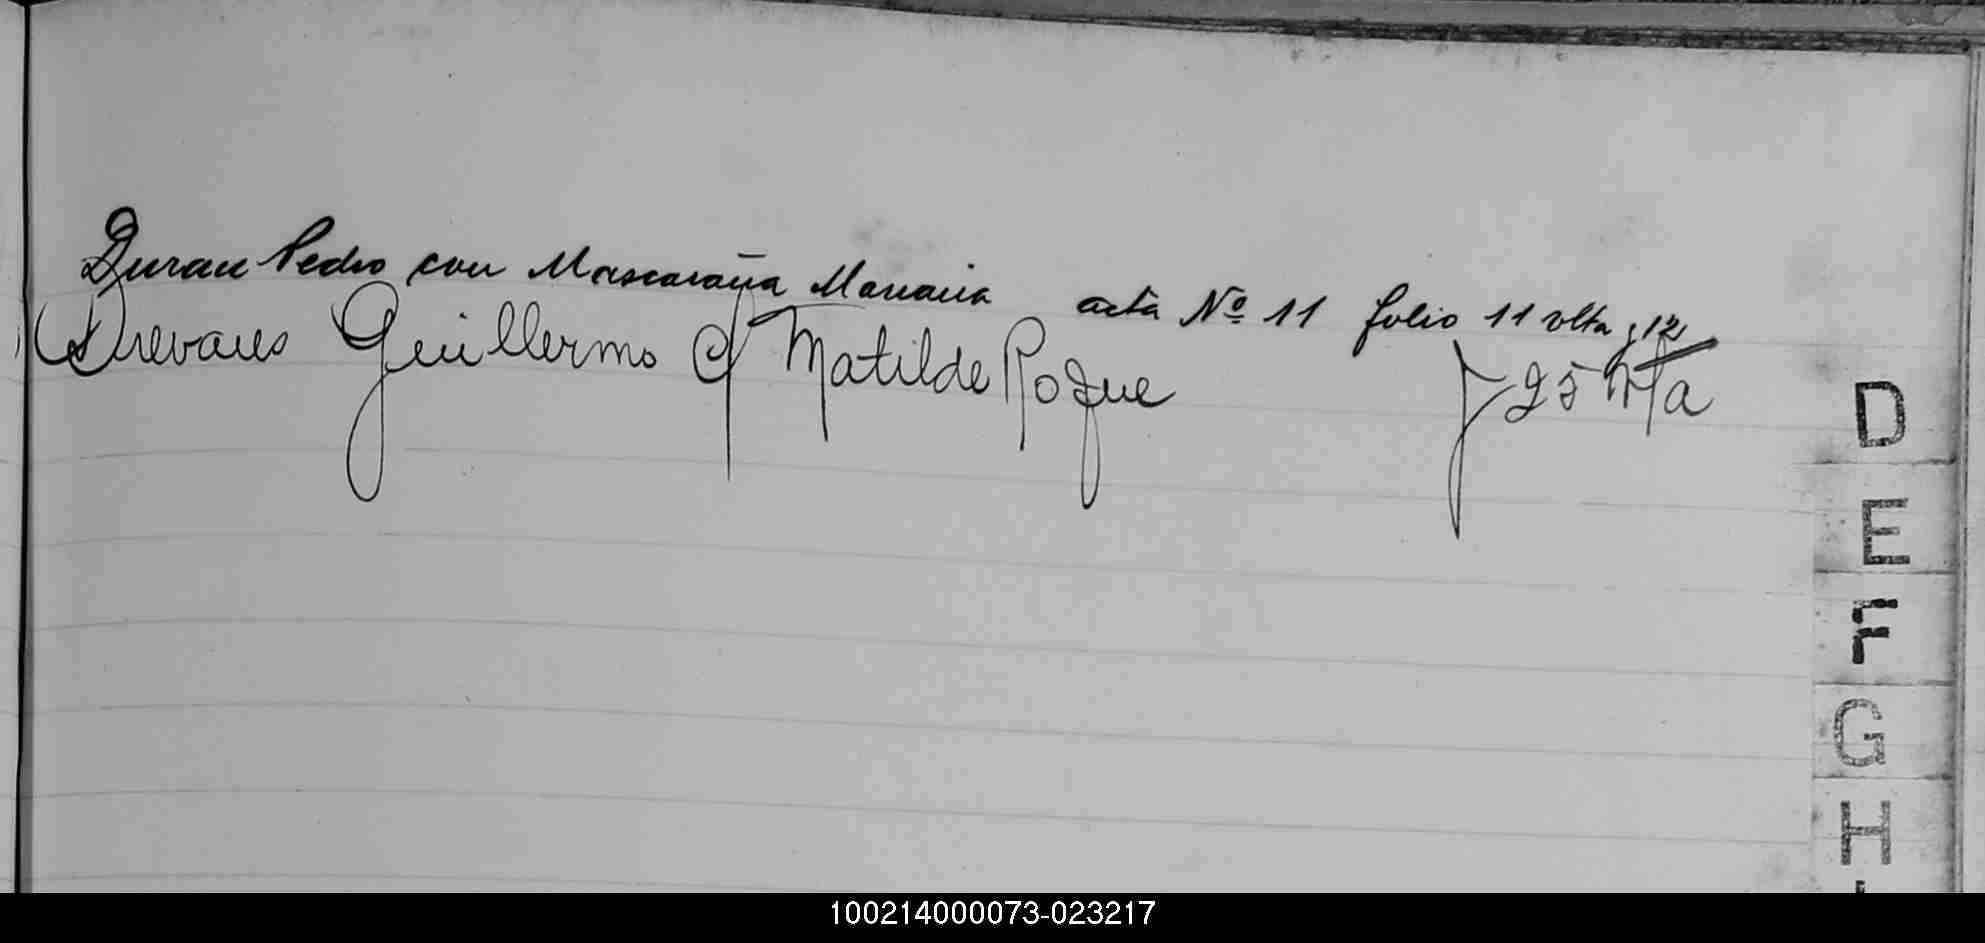 Duran Pedro con Mascaraña Mariana acta Nº 11 folio 11 vlta y 12
Guillermo c/ Matilde Roque f 25 vta
D
E
F
G
H
100214000073-023217